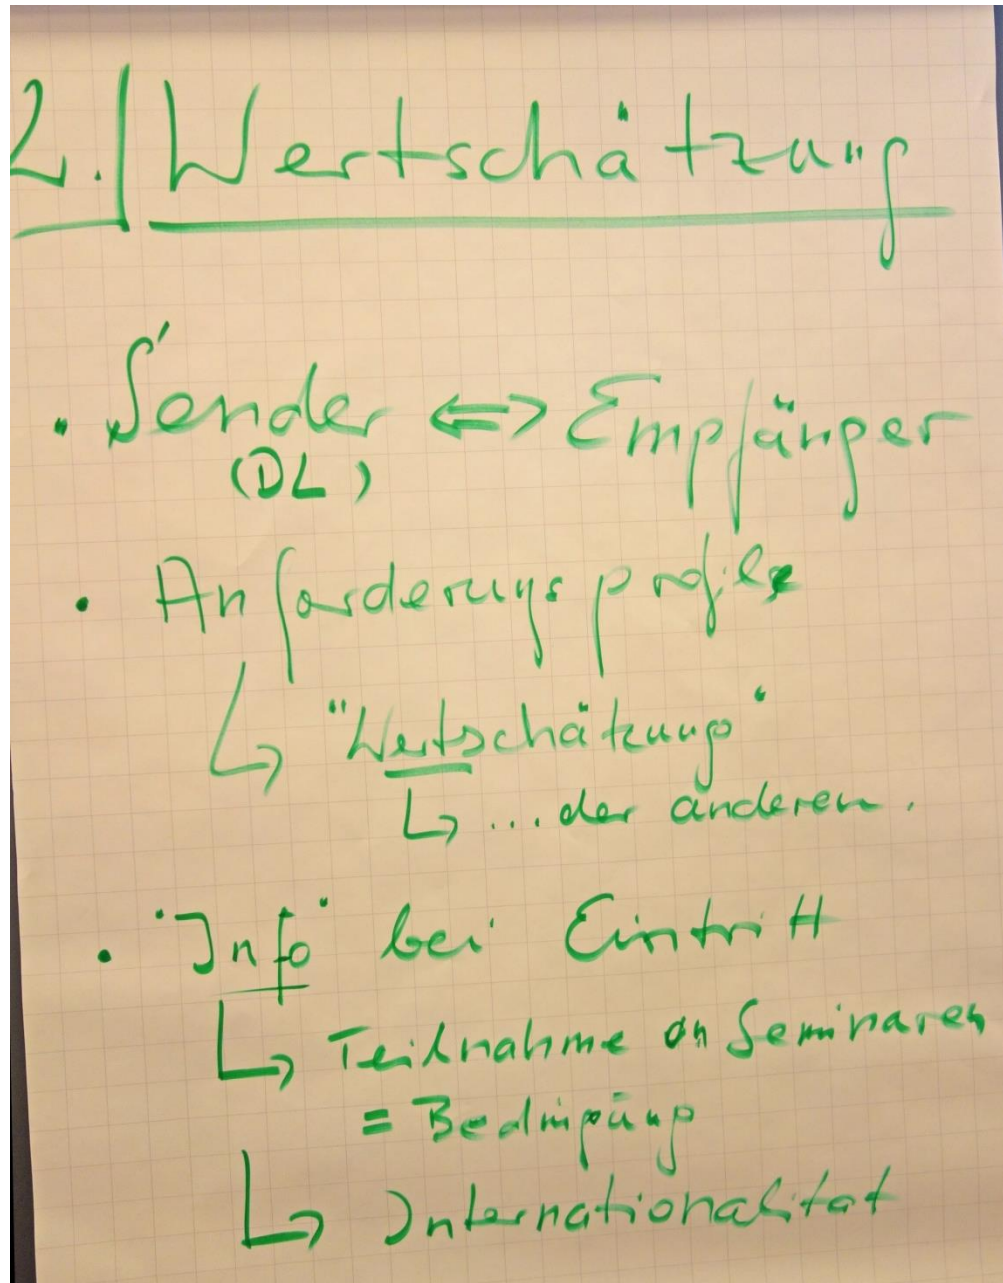 2. Wertschätzung
• Sender ⇔ Empfänger
(DL)
• Anforderungsprofile
↳ "Wertschätzung"
↳ ... der anderen.
• "Info" bei Eintritt
↳ Teilnahme an Seminaren
= Bedingung
↳ Internationalität